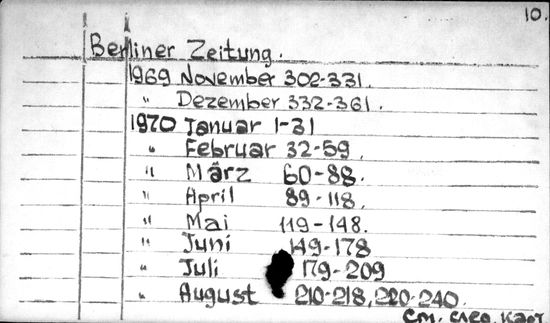 10.
Berliner Zeitung.
1969 November 302-331.
" Dezember 332-361.
1970 Januar 1-31
" Februar 32-59.
" März 60-88.
" April 89-118.
" Mai 119-148.
" Juni 149-178
" Juli 179-209
" August 210-218, 220-240.
См. след. карт